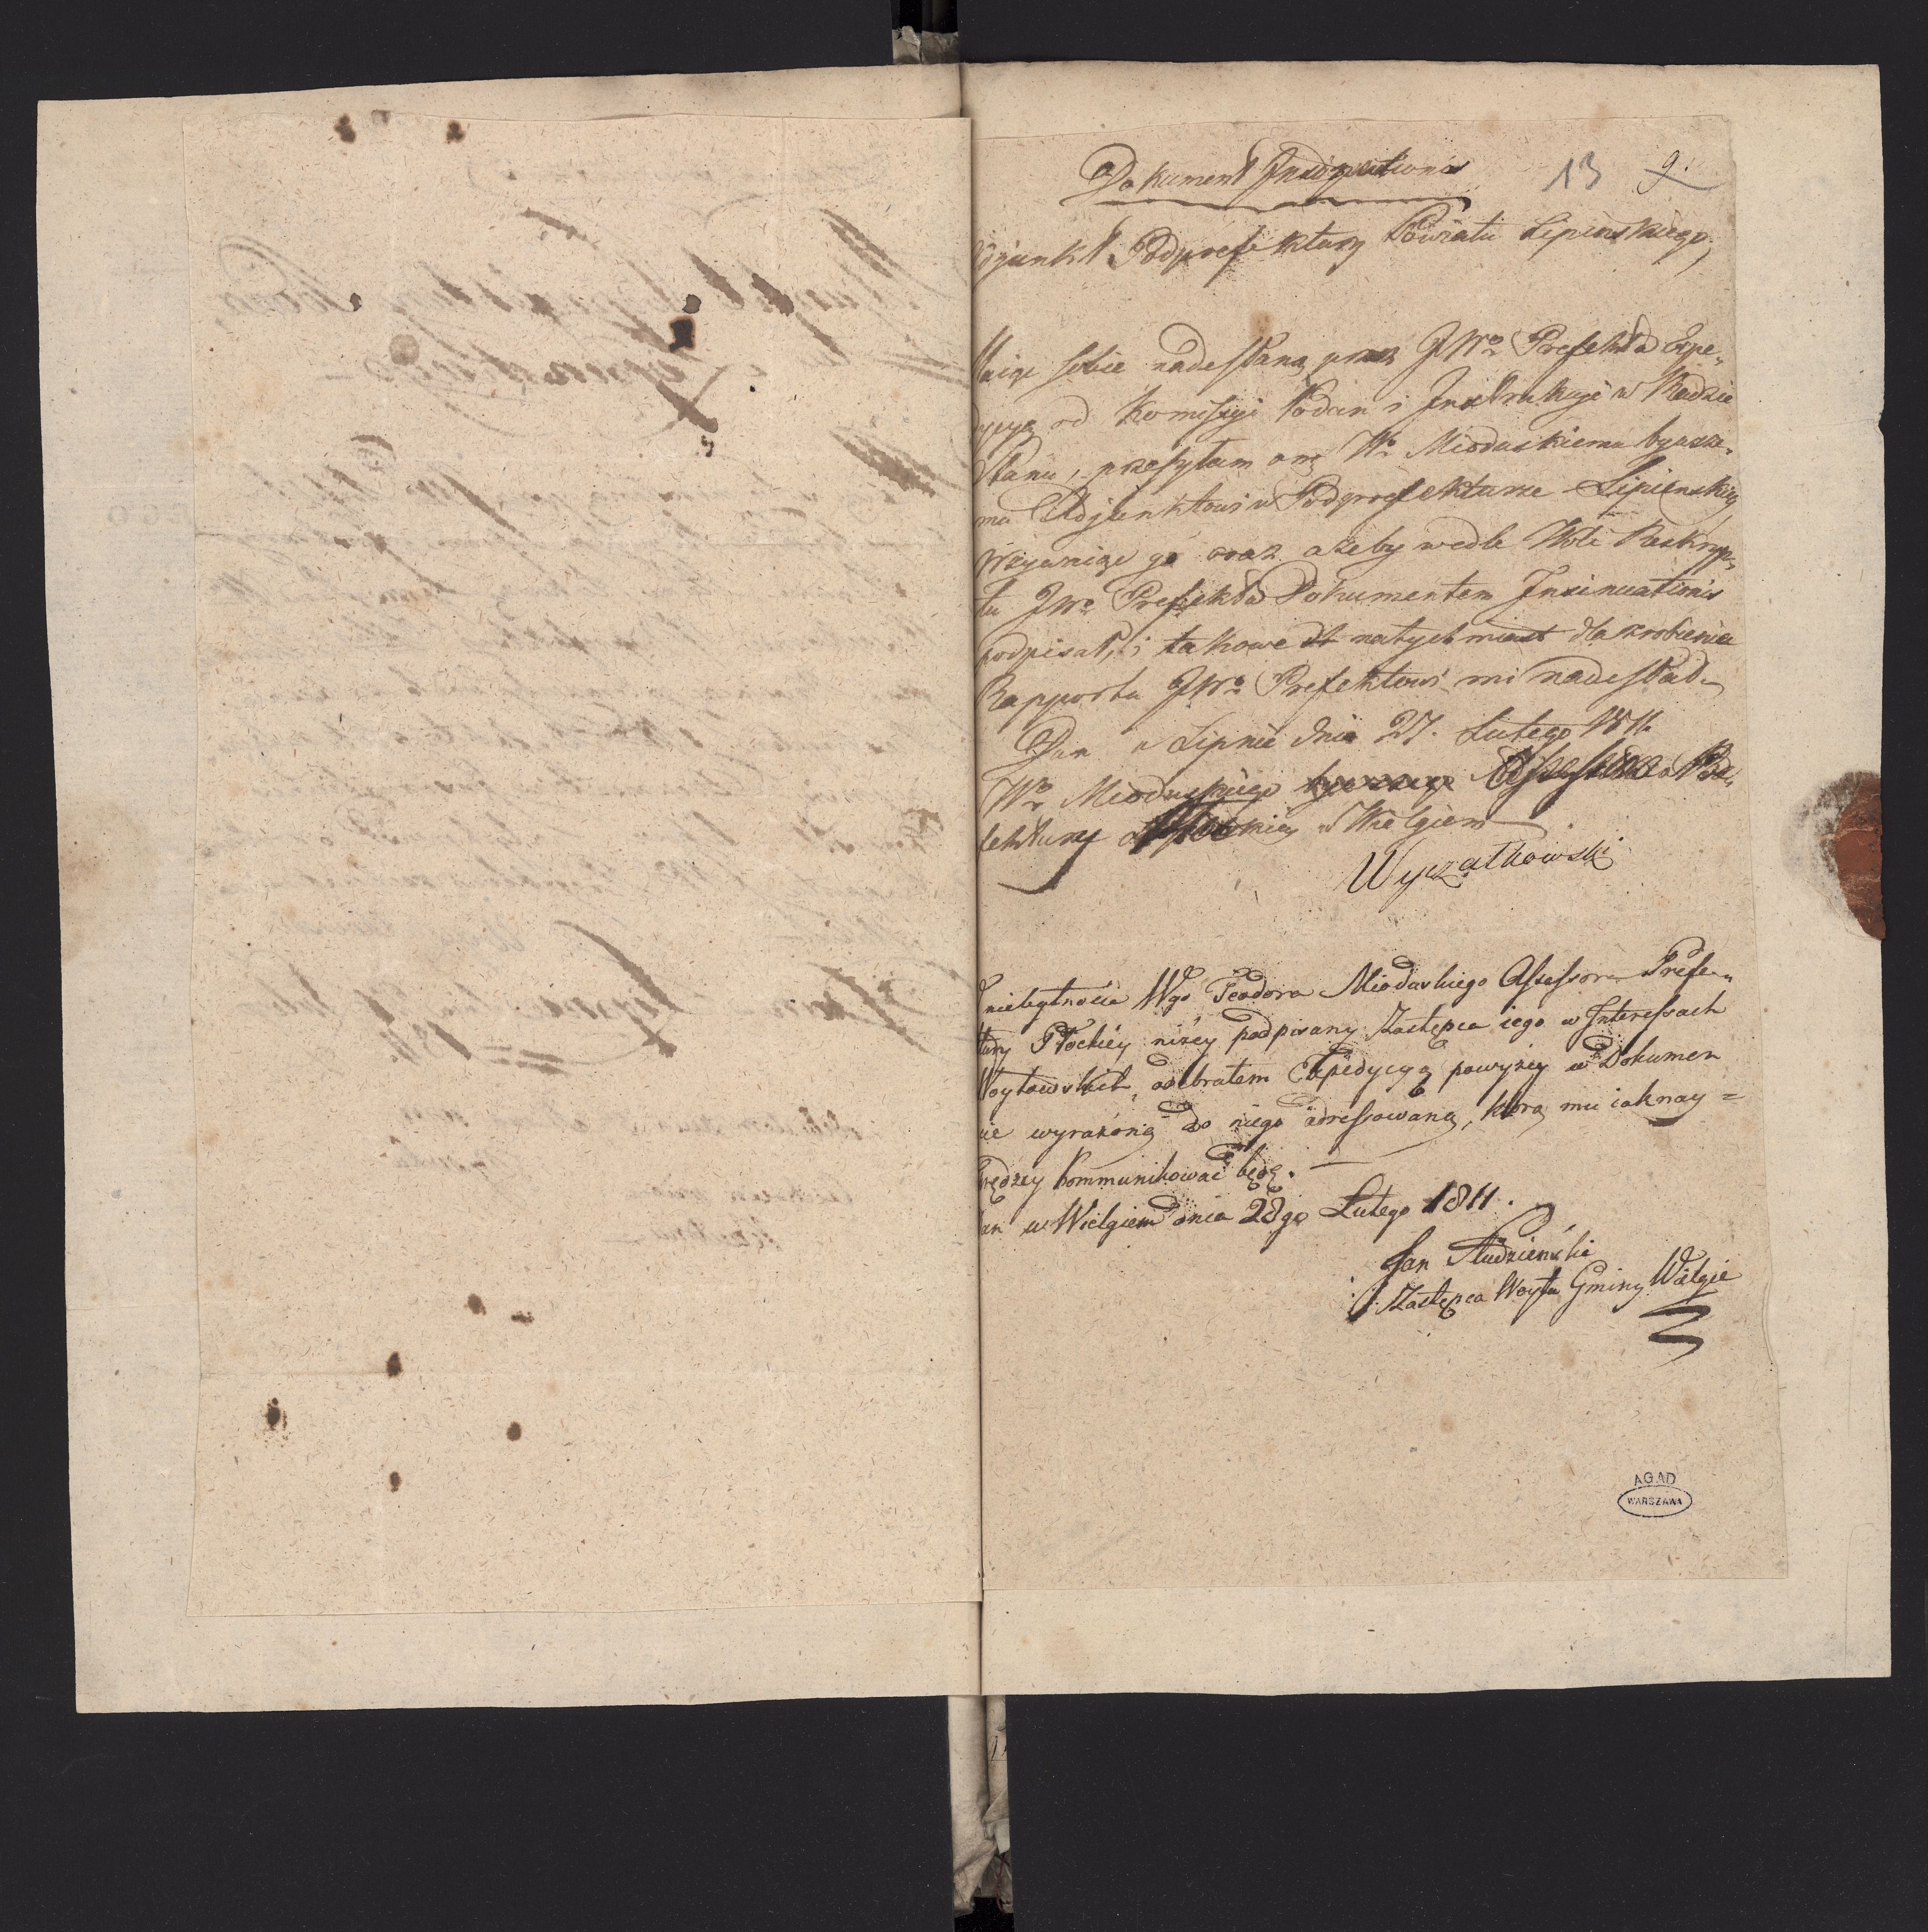 Dokument Insinuationis
13 9.
djunkt Podprefektury Powiatu Lipinskiego,
aiąc sobie nadesłaną przez JWo Prefekta Expe„
ycyą od Komissyi Podan i Instrukcyi w Radzie
Stanu, przesyłam onę Wo Mioduskiemu bywsze„
mu Adjunktowi w Podprefekturze Lipienskiey
wzywaiąc go oraz ażeby wedle Woli Reskryp„
tu JWo Prefekta Dokumentem Insinuationis
podpisał, i takowe natychmiast dla zrobienia
Rapportu JWo Prefektowi mi nadesłał.
Dan w Lipnie dnia 27. Lutego 1811.
Wo Mioduskiego Assessora Pre„
fektury w Wielgiem
Wyczałkowski
nieległności Wgo Teodora Mioduskiego Assessora Prefe„
tury Płockiéy niżey podpisany Zastępca iego w Interessach
Woytowskich, odebrałem Expedycyą powyżey w Dokumen
cie wyrażoną do niego adressowaną, którą mu iaknay=
prędzey kommunikować będę. —
an w Wielgiem dnia 28go Lutego 1811.
Jan Studzienski
Zastępca Woyta Gminy Wielgie
AGAD
WARSZAWA